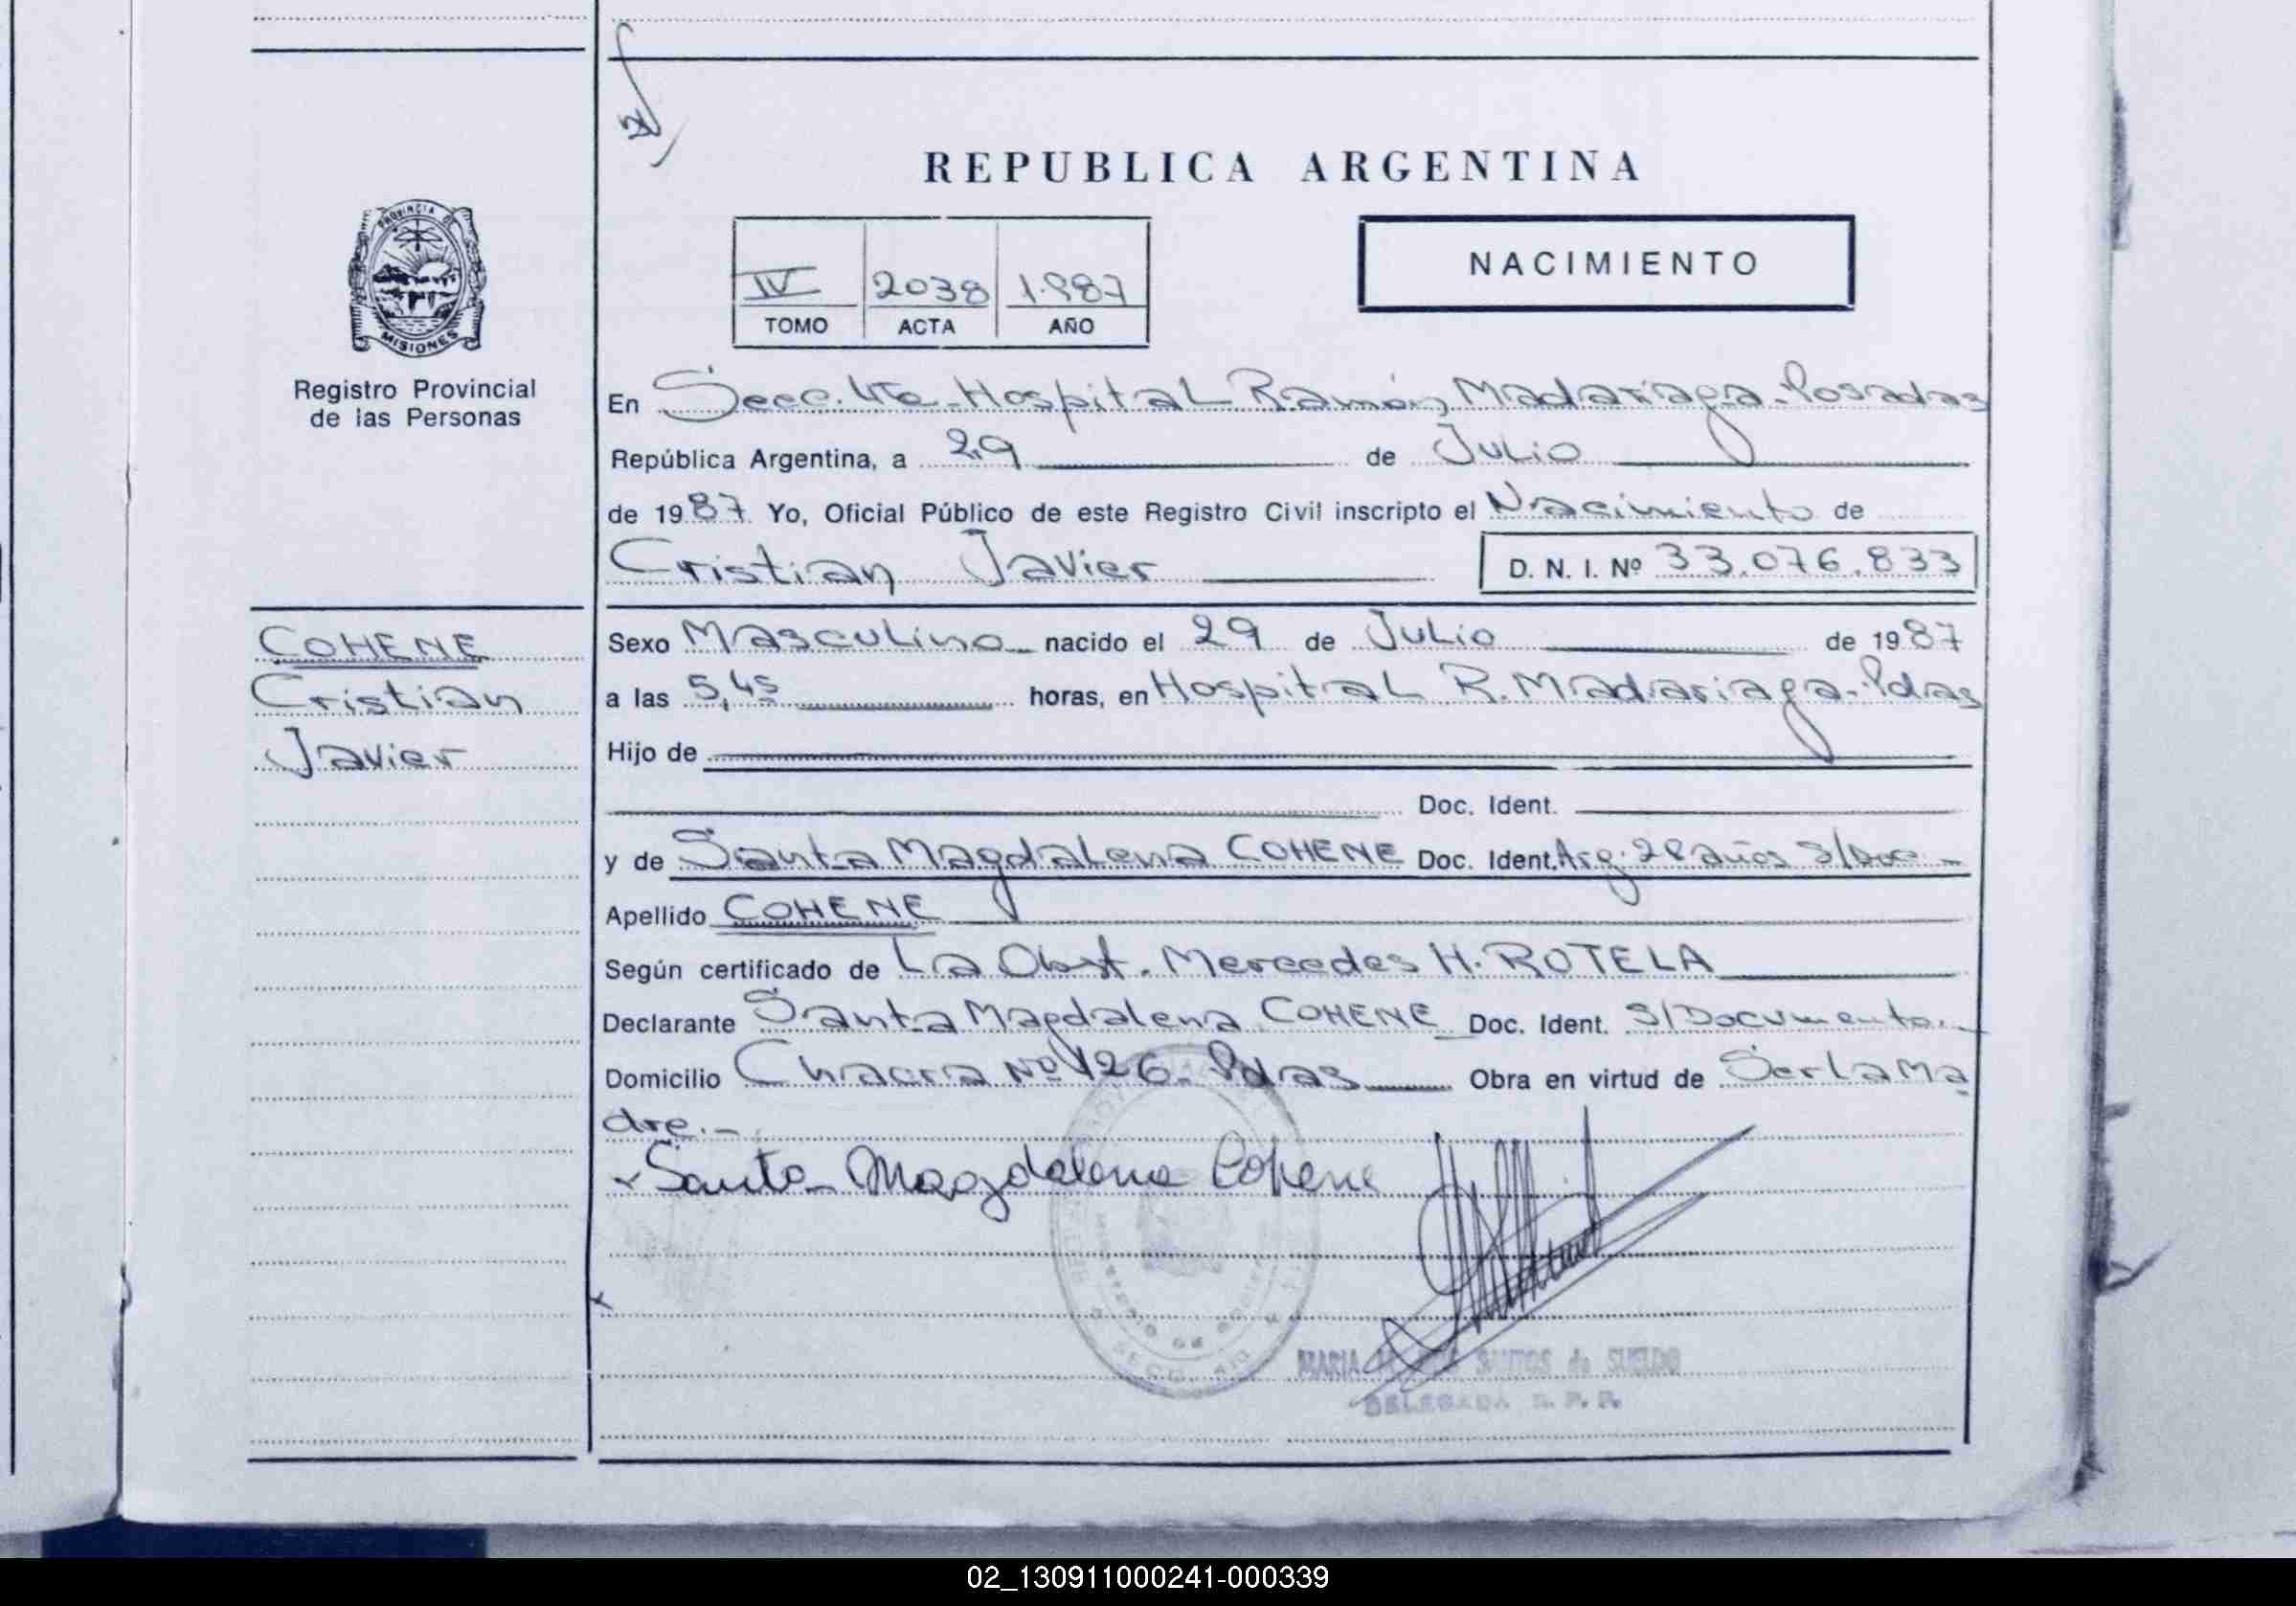 REPUBLICA ARGENTINA
PROVINCIA DE
MISIONES
Registro Provincial
de las Personas
IV 2038 1.987
TOMO ACTA AÑO
NACIMIENTO
En Secc. 4ta - Hospital Ramón Madariaga - Posadas
República Argentina, a 29 de Julio
de 1987 Yo, Oficial Público de este Registro Civil inscripto el Nacimiento de
Cristian Javier D. N. I. Nº 33.076.833
COHENE
Cristian
Javier
Sexo Masculino nacido el 29 de Julio de 1987
a las 5,45 horas, en Hospital R. Madariaga - Pdas
Hijo de
Doc. Ident.
y de Santa Magdalena COHENE Doc. Ident. Arg. 28 años S/Doc -
Apellido COHENE
Según certificado de La Obst. Mercedes H. ROTELA
Declarante Santa Magdalena COHENE Doc. Ident. S/Documento.
Domicilio Chacra Nº 126 - Pdas Obra en virtud de Ser La Ma
dre.-
Santa Magdalena Cohene
MARIA SANTOS de SUELDO
DELEGADA R. P. P.
02_130911000241-000339